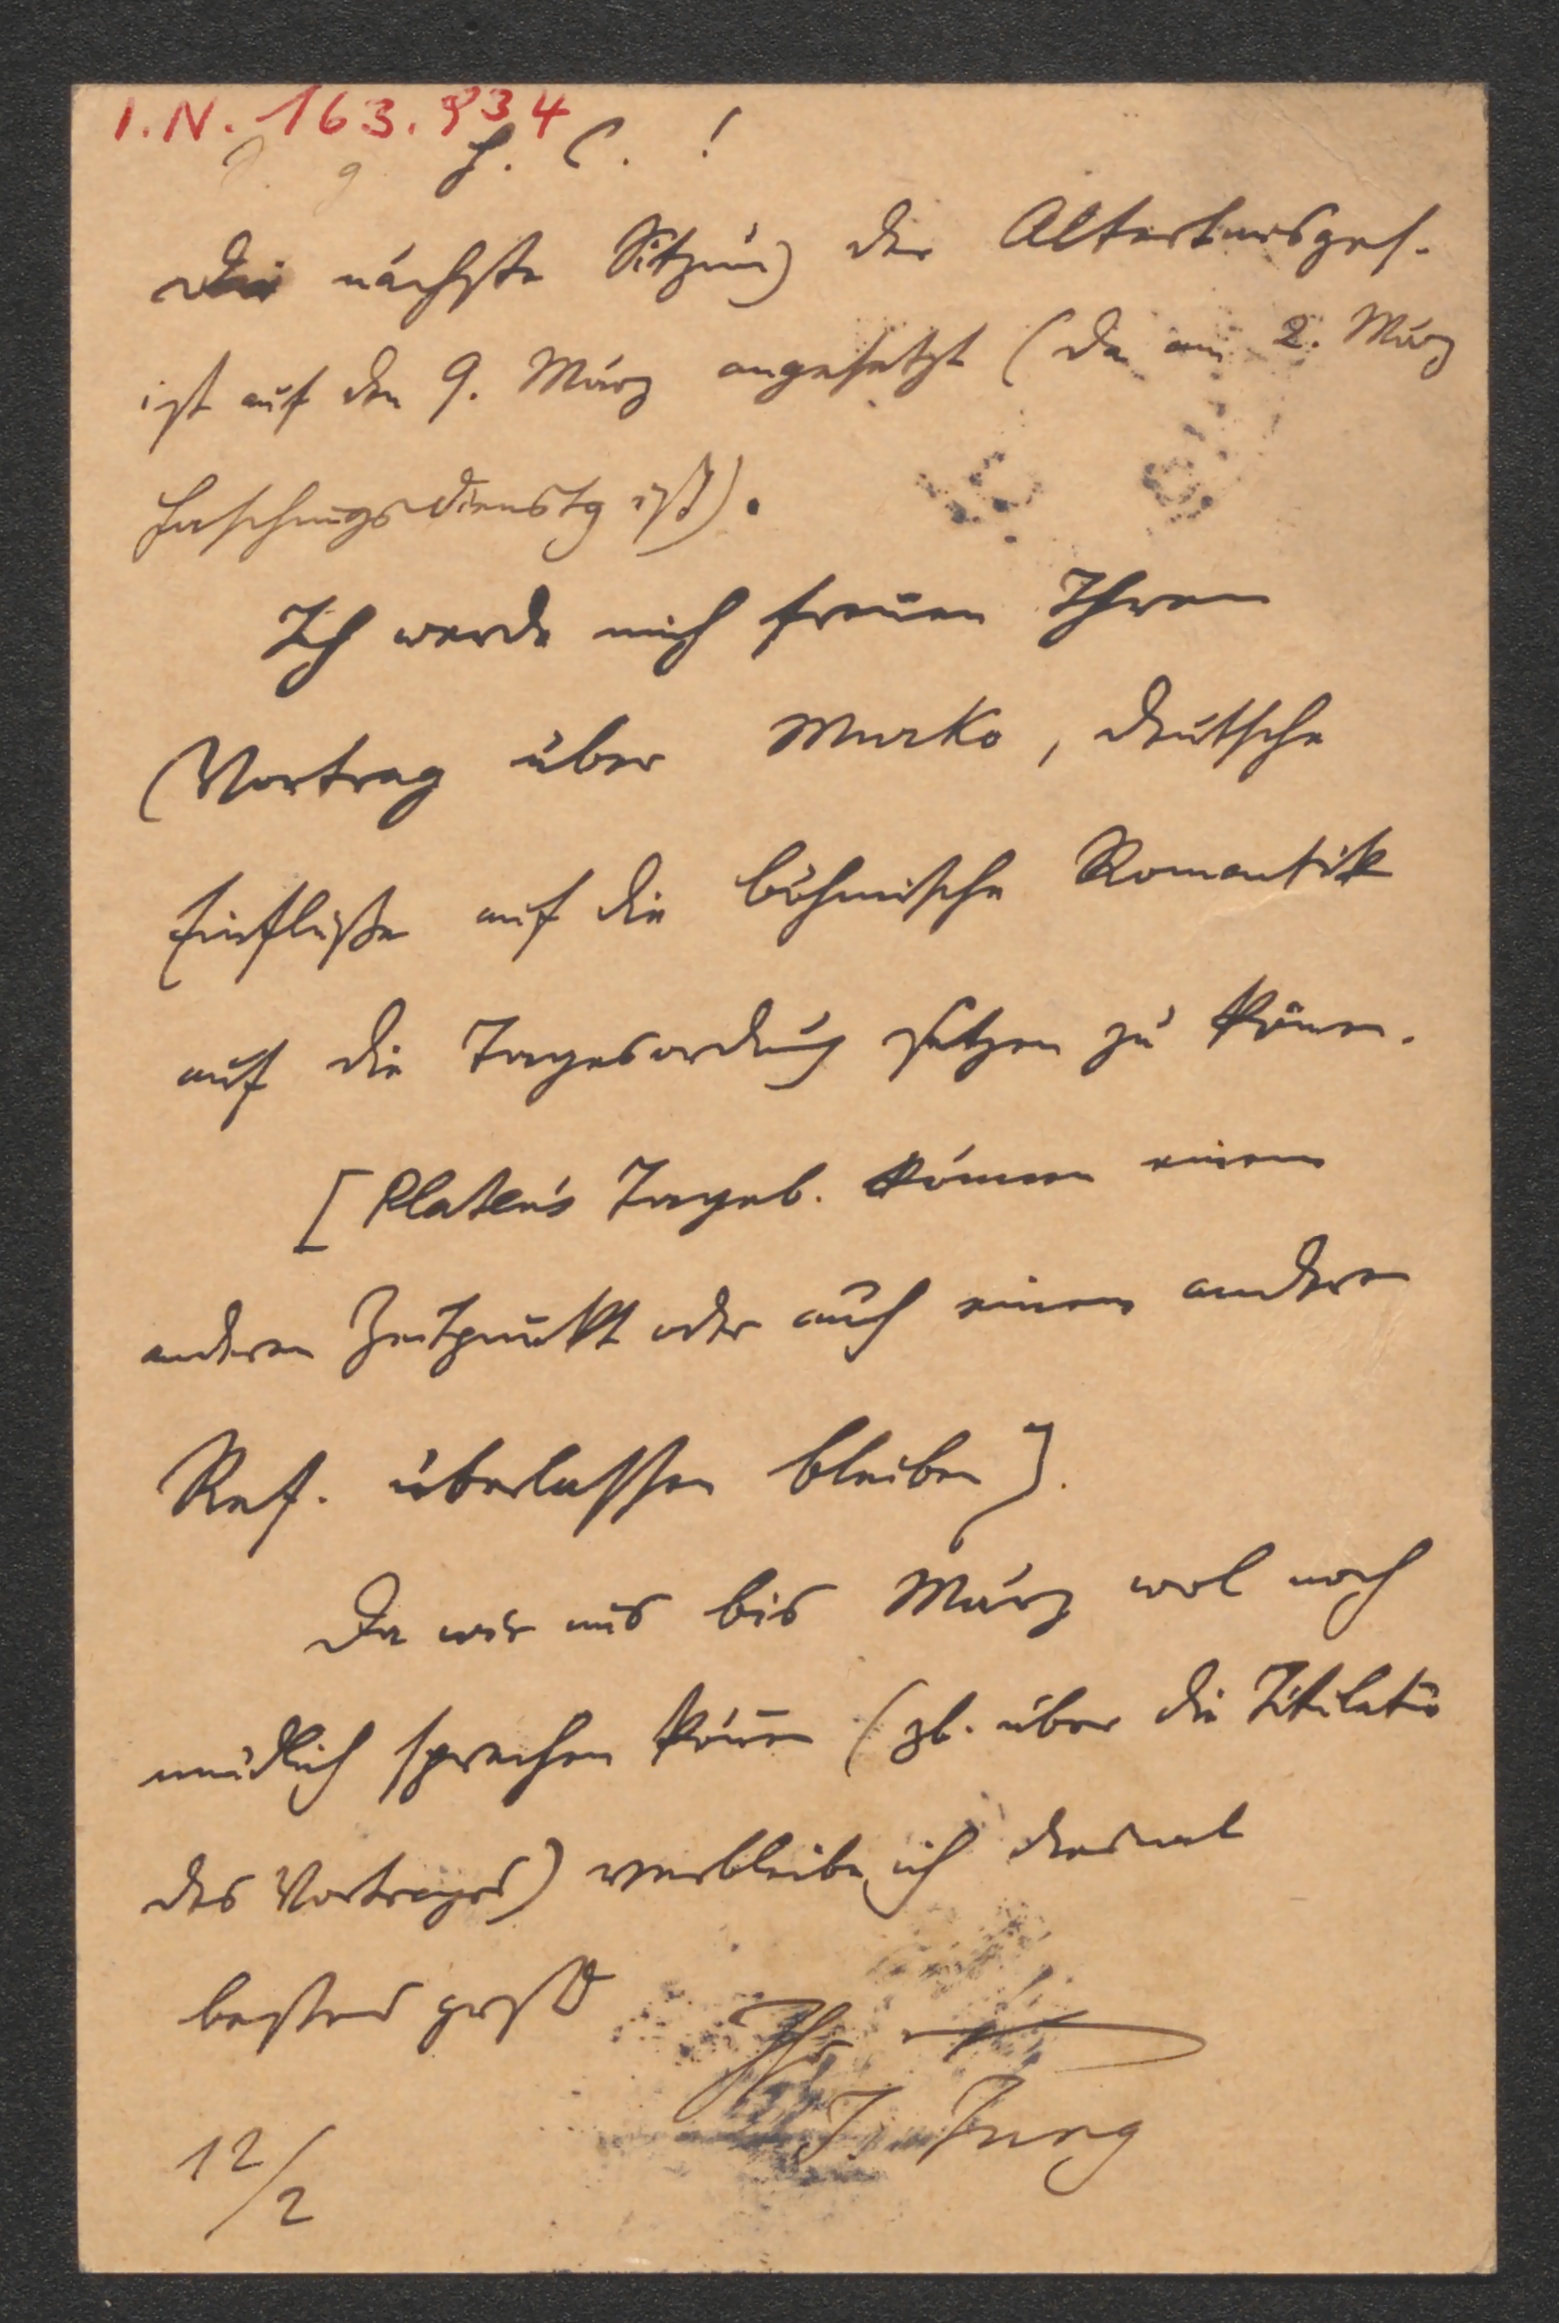 I.N. 163.934
H. C. !
Die nächste Sitzung der Altertumsges.
ist auf den 9. März angesetzt (da am 2. März
Faschingsdienstg ist).
Ich werde mich freuen Ihren
Vortrag über Murko, deutsche
Einflüße auf die böhmische Romantik
auf die Tagesordnung setzen zu können.
[Platen's Tageb. können einem
anderen Zeitpunkt oder auch einem andern
Ref. überlassen bleiben].
Da wir uns bis März wol noch
mündlich sprechen können (zb. über die Titulatur
des Vortrages) verbleibe ich diesmal
bestens
Ihr
12/2